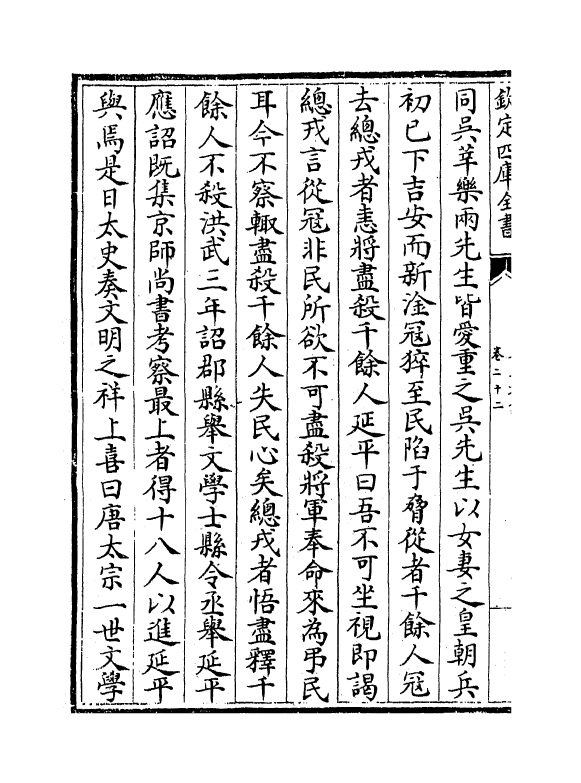 欽定四庫全書
卷二十二
同吳莘樂兩先生皆愛重之吳先生以女妻之皇朝兵
初已下吉安而新淦冦猝至民陷于脅從者千餘人冦
去總戎者恚將盡殺千餘人延平曰吾不可坐視即謁
總戎言從冦非民所欲不可盡殺將軍奉命來為弔民
耳今不察輙盡殺千餘人失民心矣總戎者悟盡釋千
餘人不殺洪武三年詔郡縣舉文學士縣令丞舉延平
應詔既集京師尚書考察最上者得十八人以進延平
與焉是日太史奏文明之祥上喜曰唐太宗一世文學